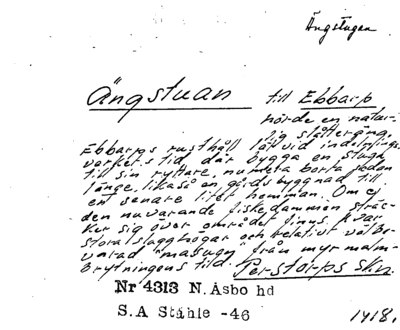 Ängstugan
Ängstuan till Ebbarp
hörde en natur-
lig slåtteräng.
Ebbarps rusthåll lät vid indelnings-
verkets tid där bygga en stuga
till sin ryttare, numera borta sedan
länge, likaså en gårdsbyggnad till
ett senare litet hemman. Om ej
den nuvarande fiskedammen sträc-
ker sig över området finns kvar
stora slagghögar och relativt välbe-
varad masugn från myrmalm-
brytningens tid. Perstorps skn.
Nr 4313 N. Åsbo hd
S.A Ståhle -46
1418.